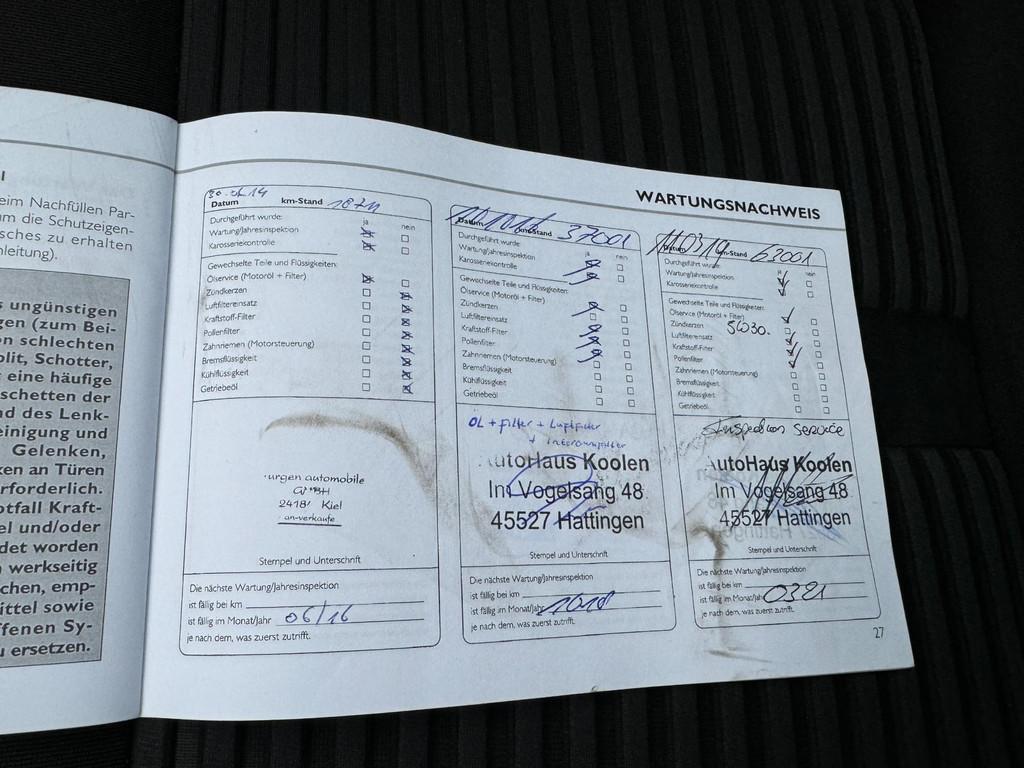 eim Nachfüllen Par-
um die Schutzeigen-
sches zu erhalten
nleitung).
s ungünstigen
gen (zum Bei-
n schlechten
olit, Schotter,
eine häufige
schetten der
nd des Lenk-
einigung und
Gelenken,
ken an Türen
rforderlich.
otfall Kraft-
el und/oder
det worden
werkseitig
chen, emp-
ittel sowie
ffenen Sy-
u ersetzen.
WARTUNGSNACHWEIS
Datum km-Stand
Durchgeführt wurde: ja nein
Wartung/Jahresinspektion
Karosseriekontrolle
Gewechselte Teile und Flüssigkeiten:
Ölservice (Motoröl + Filter)
Zündkerzen
Luftfiltereinsatz
Kraftstoff-Filter
Pollenfilter
Zahnriemen (Motorsteuerung)
Bremsflüssigkeit
Kühlflüssigkeit
Getriebeöl
urgen automobile
Kiel
an-verkaufe
Stempel und Unterschrift
Die nächste Wartung/Jahresinspektion
ist fällig bei km
ist fällig im Monat/Jahr 06/16
je nach dem, was zuerst zutrifft.
Datum km-Stand 37001
Durchgeführt wurde: ja nein
Wartung/Jahresinspektion
Karosseriekontrolle
Gewechselte Teile und Flüssigkeiten:
Ölservice (Motoröl + Filter)
Zündkerzen
Luftfiltereinsatz
Kraftstoff-Filter
Pollenfilter
Zahnriemen (Motorsteuerung)
Bremsflüssigkeit
Kühlflüssigkeit
Getriebeöl
ÖL + filter + Luftfilter
+ Innenraumfilter
utoHaus Koolen
Im Vogelsang 48
45527 Hattingen
Stempel und Unterschrift
Die nächste Wartung/Jahresinspektion
ist fällig bei km
ist fällig im Monat/Jahr 1018
je nach dem, was zuerst zutrifft.
Datum km-Stand 63001
Durchgeführt wurde: ja nein
Wartung/Jahresinspektion
Karosseriekontrolle
Gewechselte Teile und Flüssigkeiten:
Ölservice (Motoröl + Filter)
Zündkerzen 5W30.
Luftfiltereinsatz
Kraftstoff-Filter
Pollenfilter
Zahnriemen (Motorsteuerung)
Bremsflüssigkeit
Kühlflüssigkeit
Getriebeöl
Inspektion Service
AutoHaus Koolen
Im Vogelsang 48
45527 Hattingen
Stempel und Unterschrift
Die nächste Wartung/Jahresinspektion
ist fällig bei km
ist fällig im Monat/Jahr 0321
je nach dem, was zuerst zutrifft.
27